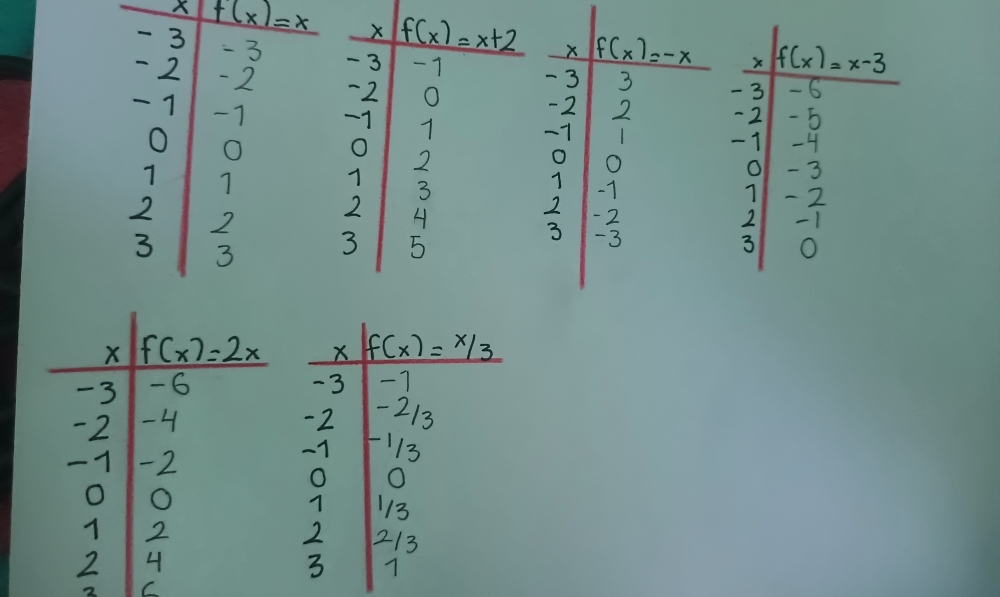 x f(x)=x
-3 -3
-2 -2
-1 -1
0 0
1 1
2 2
3 3
x f(x)=x+2
-3 -1
-2 0
-1 1
0 2
1 3
2 4
3 5
x f(x)=-x
-3 3
-2 2
-1 1
0 0
1 -1
2 -2
3 -3
x f(x)=x-3
-3 -6
-2 -5
-1 -4
0 -3
1 -2
2 -1
3 0
x f(x)=2x
-3 -6
-2 -4
-1 -2
0 0
1 2
2 4
3 6
x f(x)=x/3
-3 -1
-2 -2/3
-1 -1/3
0 0
1 1/3
2 2/3
3 1